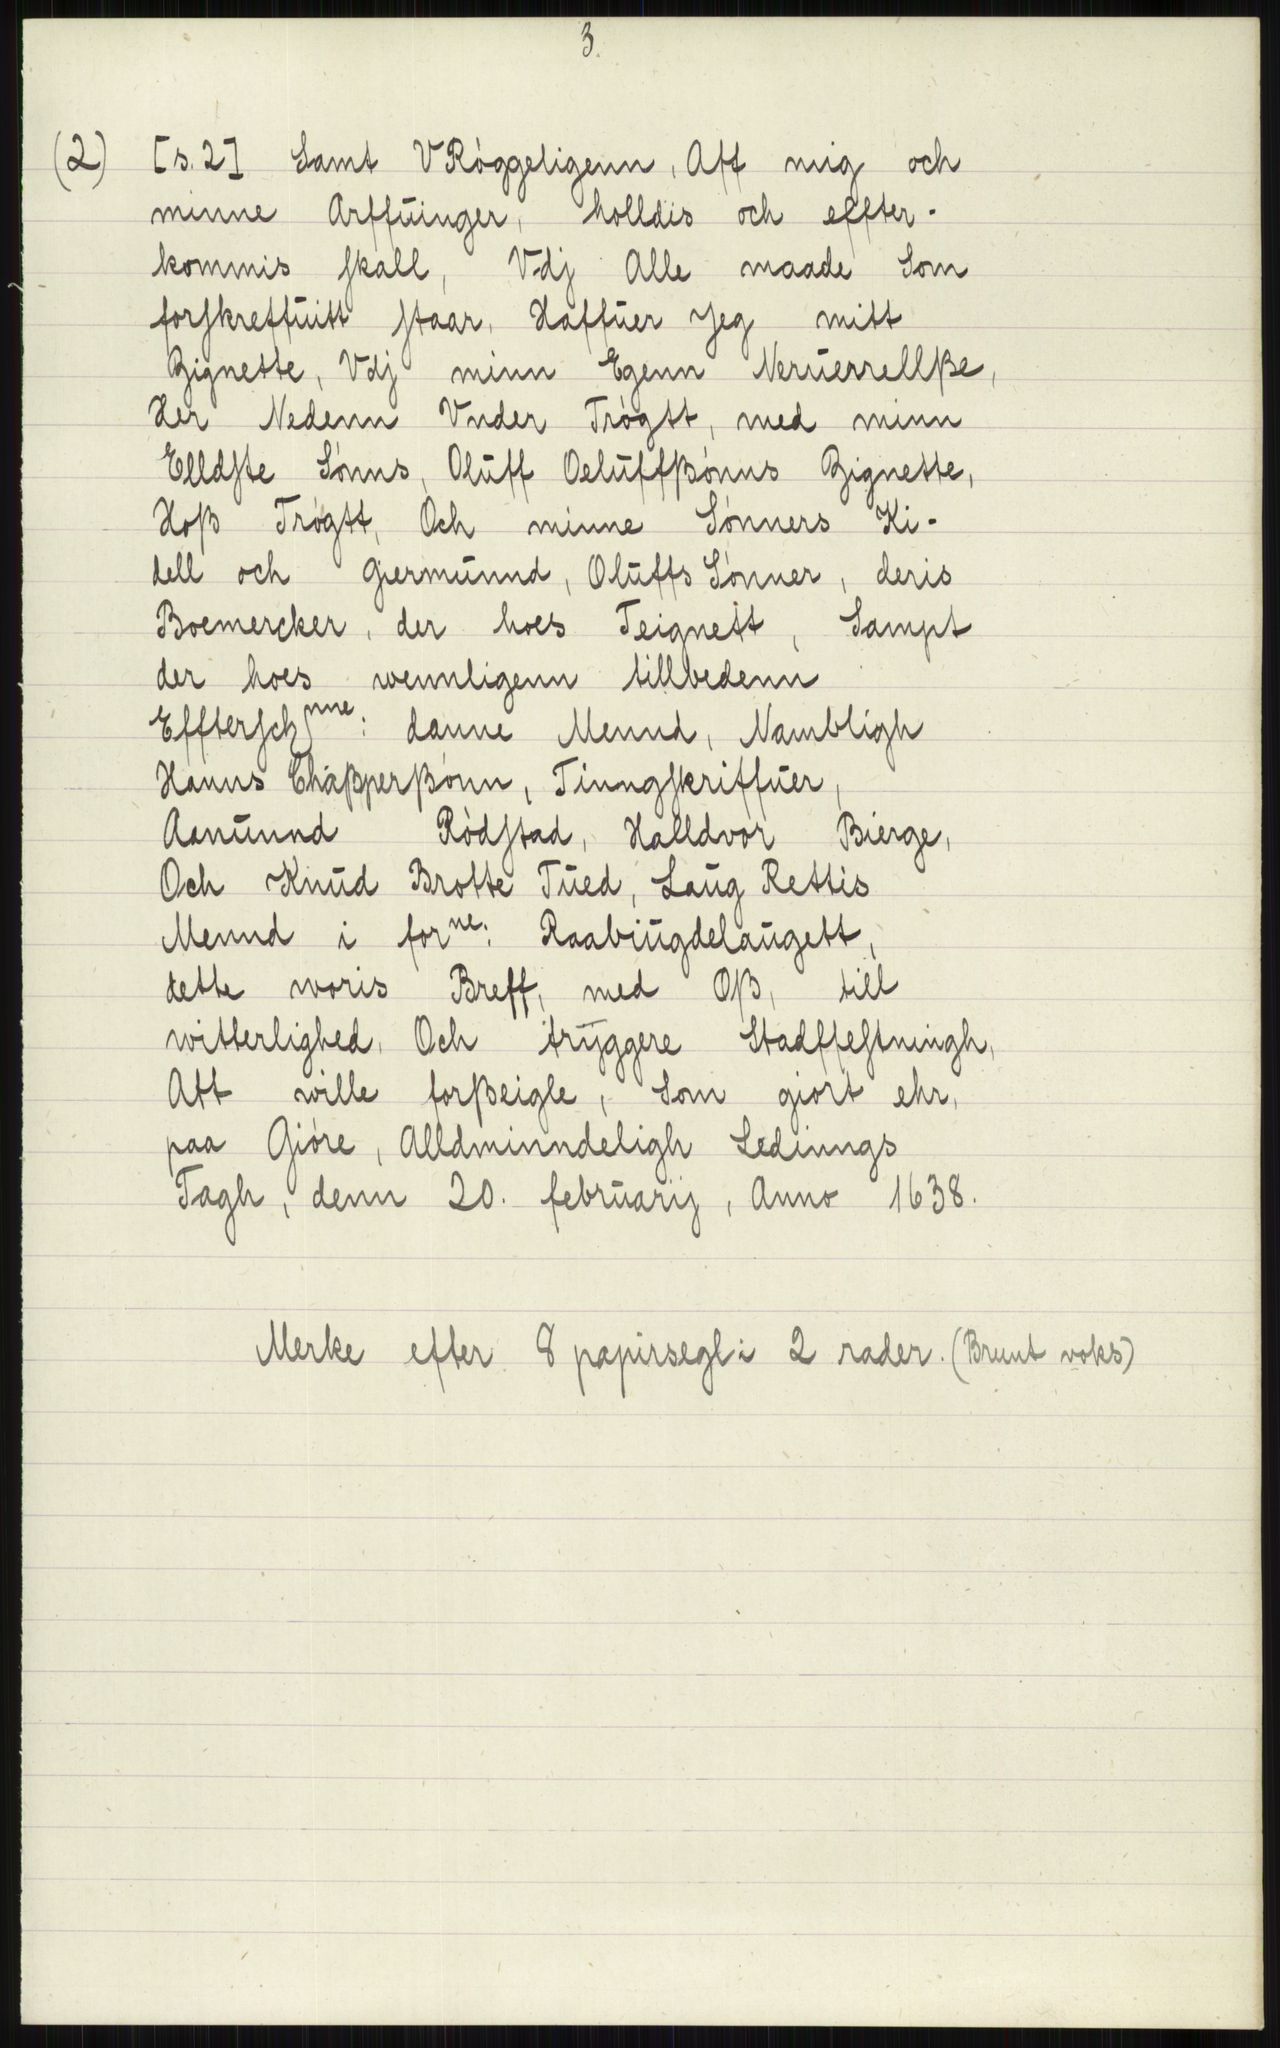 3.
(2) [s. 2] Samt VRóggeligenn, Aff mig och
minne Arffŭinger, holldis och effter-
kommis ſkall, Vdj Alle maade Som
forſkreffŭitt ſtaar, Haffŭer Jeg mitt
Zignette, Vdj minn Egenn Nerŭerrellße,
Her Nedenn Vnder Trógtt, med minn
Elldſte Sónns, Olŭff Oelŭffßónns Zignette,
Hoß Trógtt, Och minne Sónners Ki-
dell och Giermŭnnd, Olŭffs Sónner, deris
Boemercker, der hoes Teignett, Sampt
der hoes wennligenn tillbedenn
Effterſchnne: danne Mennd, Nambligh
Hanns Chaßperßónn, Tinngſkriffŭer,
Aanŭnnd Ródſtad, Halldvór Bierge,
Och Knŭd Brotte Tŭed, Laŭg Rettis
Mennd i forne: Raabiŭgdelaŭgett,
dette woris Breff, med Oß, till
witterlighed, Och trÿggere Stadffeſtningh,
Att wille forßeigle, Som giort ehr,
paa Gióre, Alldminndeligh Ledinngs
Tagh, denn 20. febrŭarij, Anno 1638.
Merke efter 8 papirsegl i 2 rader. (Brunt voks)